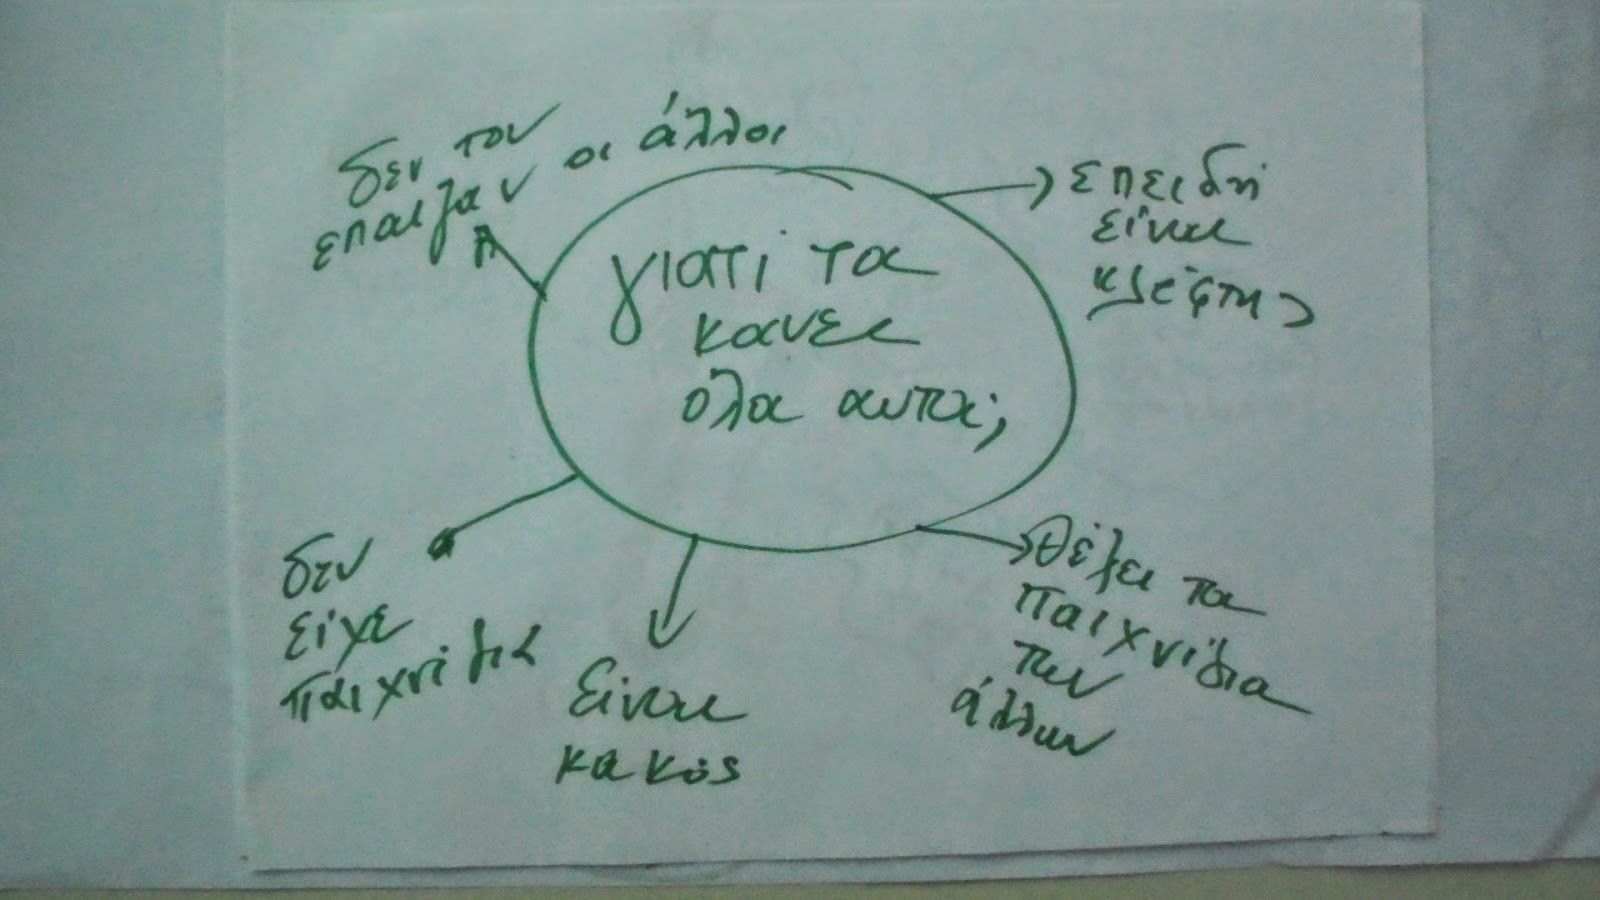 γιατί τα
κανει
όλα αυτα;
δεν τον
επαιζαν οι άλλοι
επειδή
είναι
κλέφτης
θέλει τα
παιχνίδια
των
άλλων
Είναι
κακός
δεν
είχε
παιχνίδια